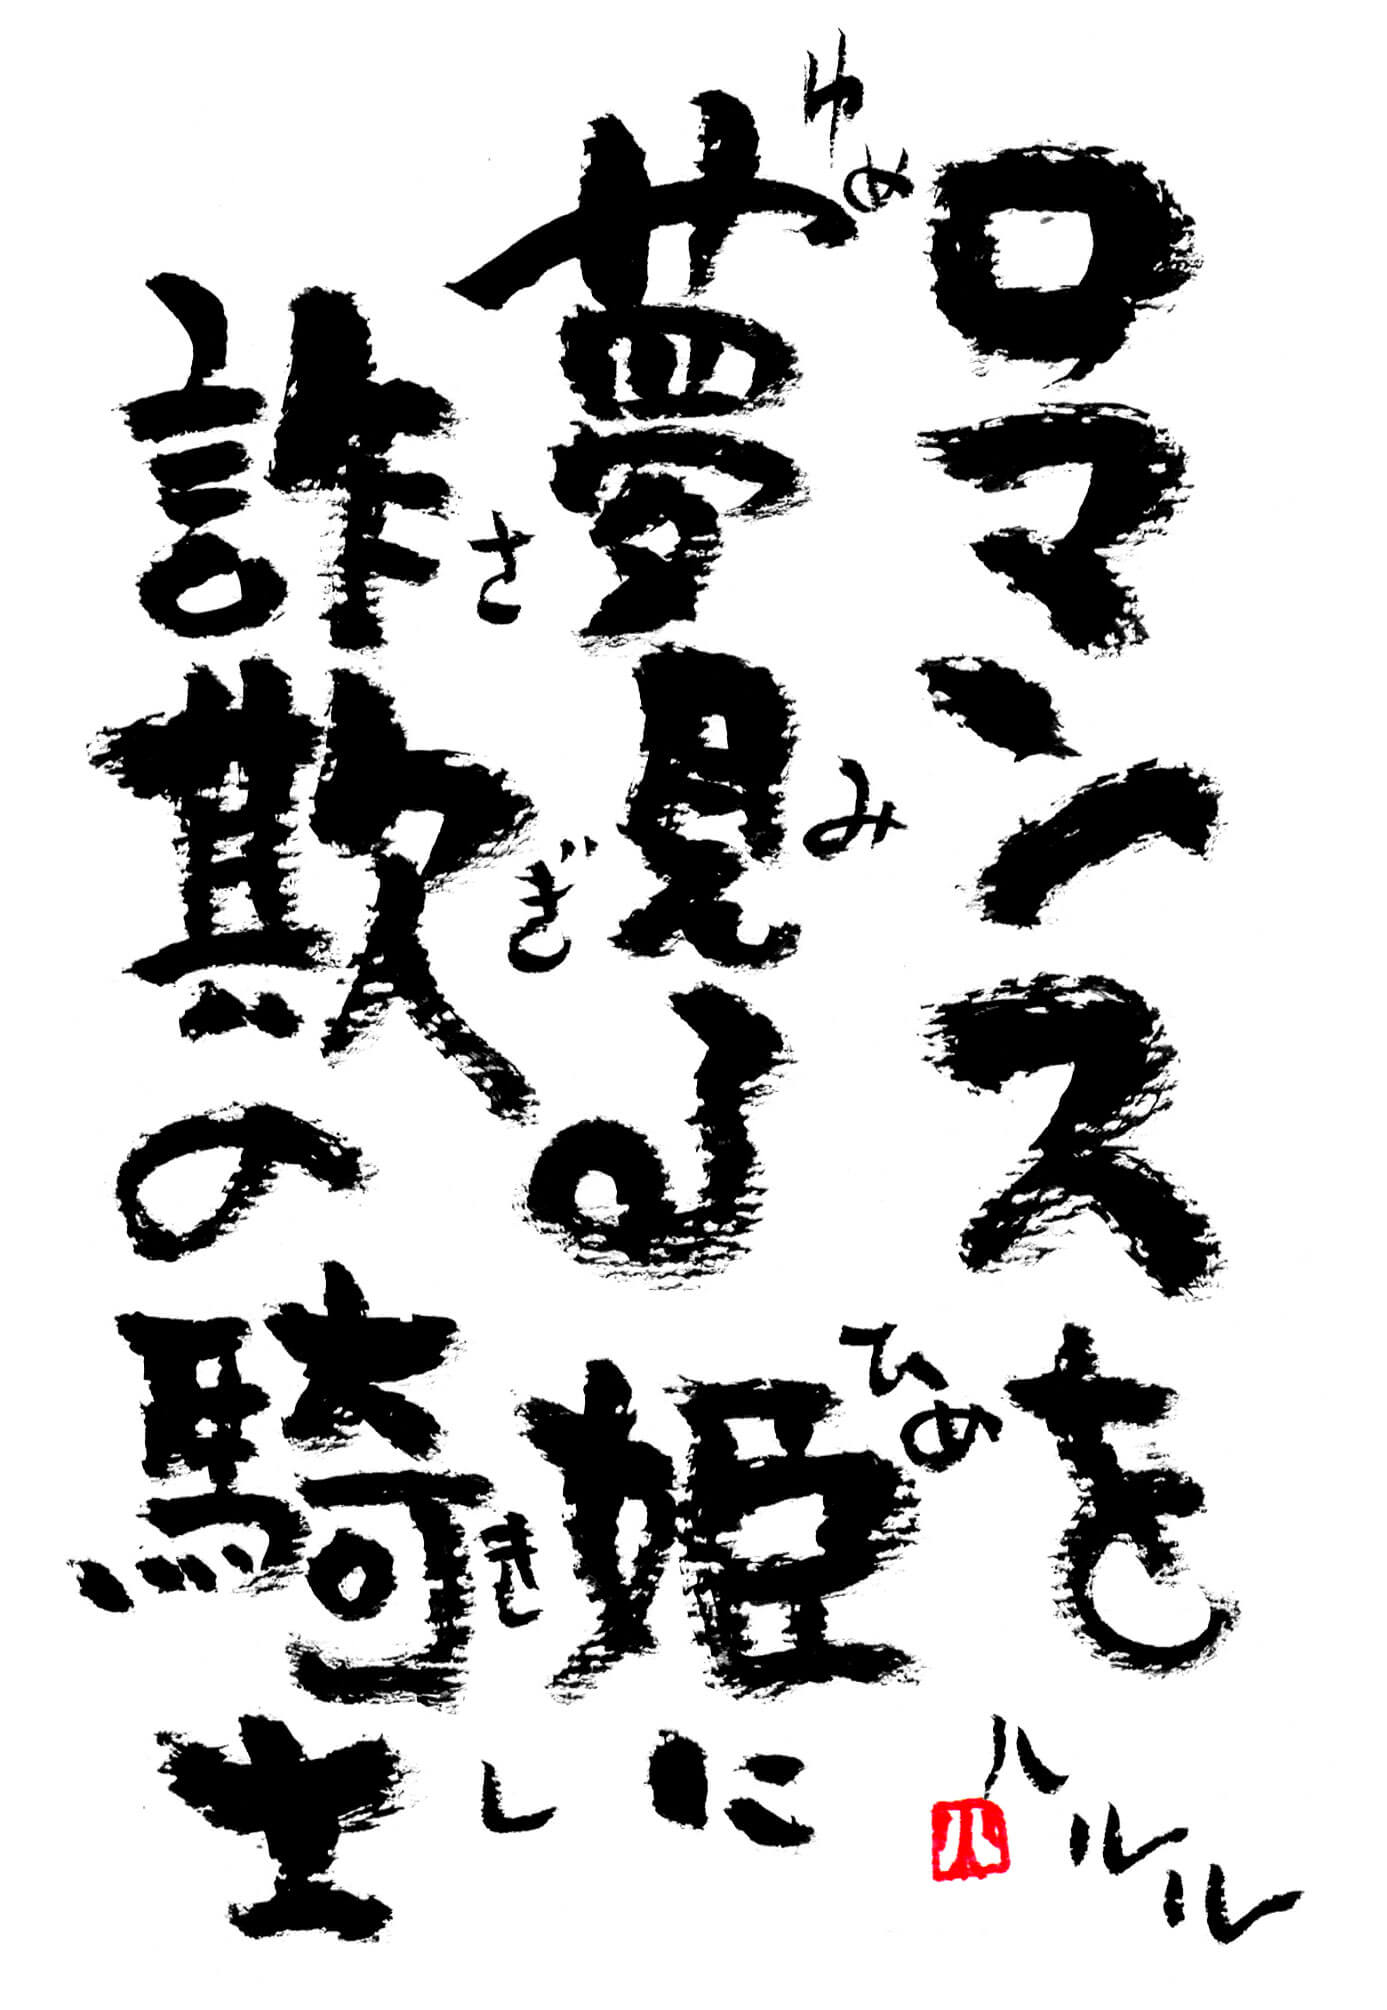 ロマンスを
夢見る姫に
ゆめ
み
ひめ
詐欺の騎士
さ
ぎ
き
し
ハルル
ハ